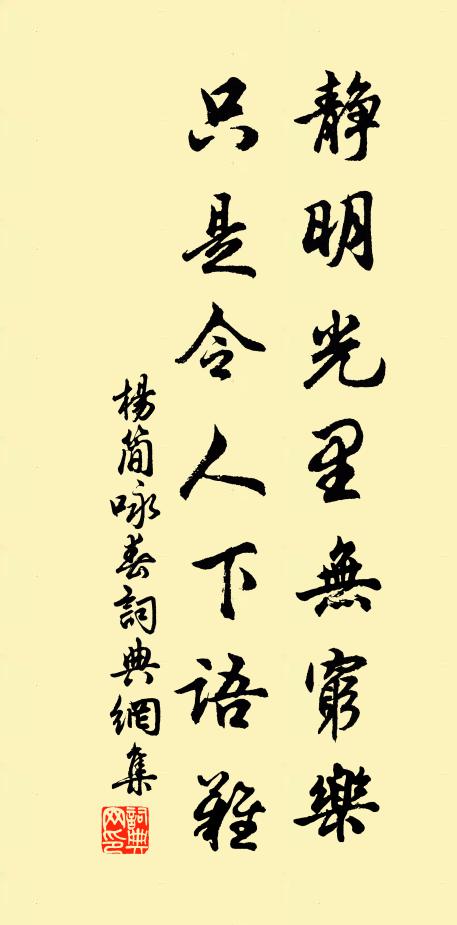 靜明光里無窮樂
只是令人下語難
楊简咏春詞典網集
詞典網印